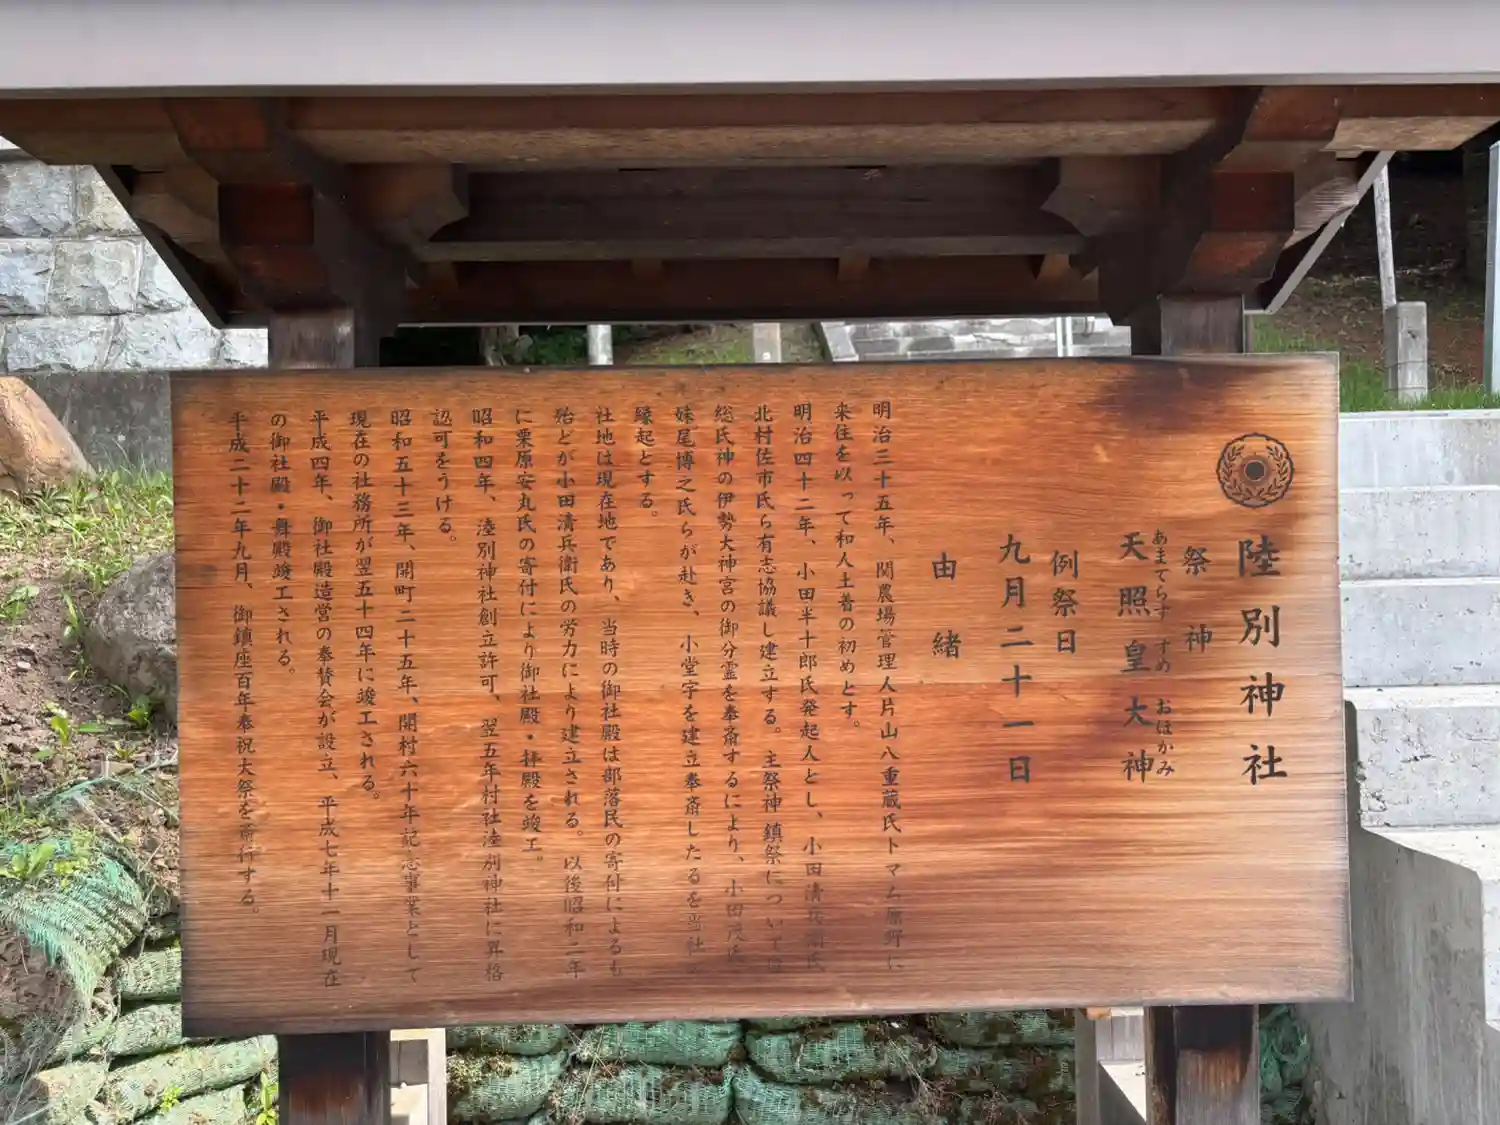 陸別神社
祭神
あまてらす すめ おほかみ
天照皇大神
例祭日
九月二十一日
由緒
明治三十五年、関農場管理人片山八重蔵氏トマム原野に
来住を以って和人土着の初めとす。
明治四十二年、小田半十郎氏発起人とし、小田清兵衛氏
北村佐市氏ら有志協議し建立する。主祭神鎮祭については
総氏神の伊勢大神宮の御分霊を奉斎するにより、小田茂氏
妹尾博之氏らが赴き、小堂宇を建立奉斎したるを当社
縁起とする。
社地は現在地であり、当時の御社殿は部落民の寄付によるも
殆どが小田清兵衛氏の労力により建立される。以後昭和二年
に栗原安丸氏の寄付により御社殿・拝殿を竣工。
昭和四年、陸別神社創立許可、翌五年村社陸別神社に昇格
認可をうける。
昭和五十三年、開町二十五年、開村六十年記念事業として
現在の社務所が翌五十四年に竣工される。
平成四年、御社殿造営の奉賛会が設立、平成七年十一月現在
の御社殿・舞殿竣工される。
平成二十二年九月、御鎮座百年奉祝大祭を斎行する。